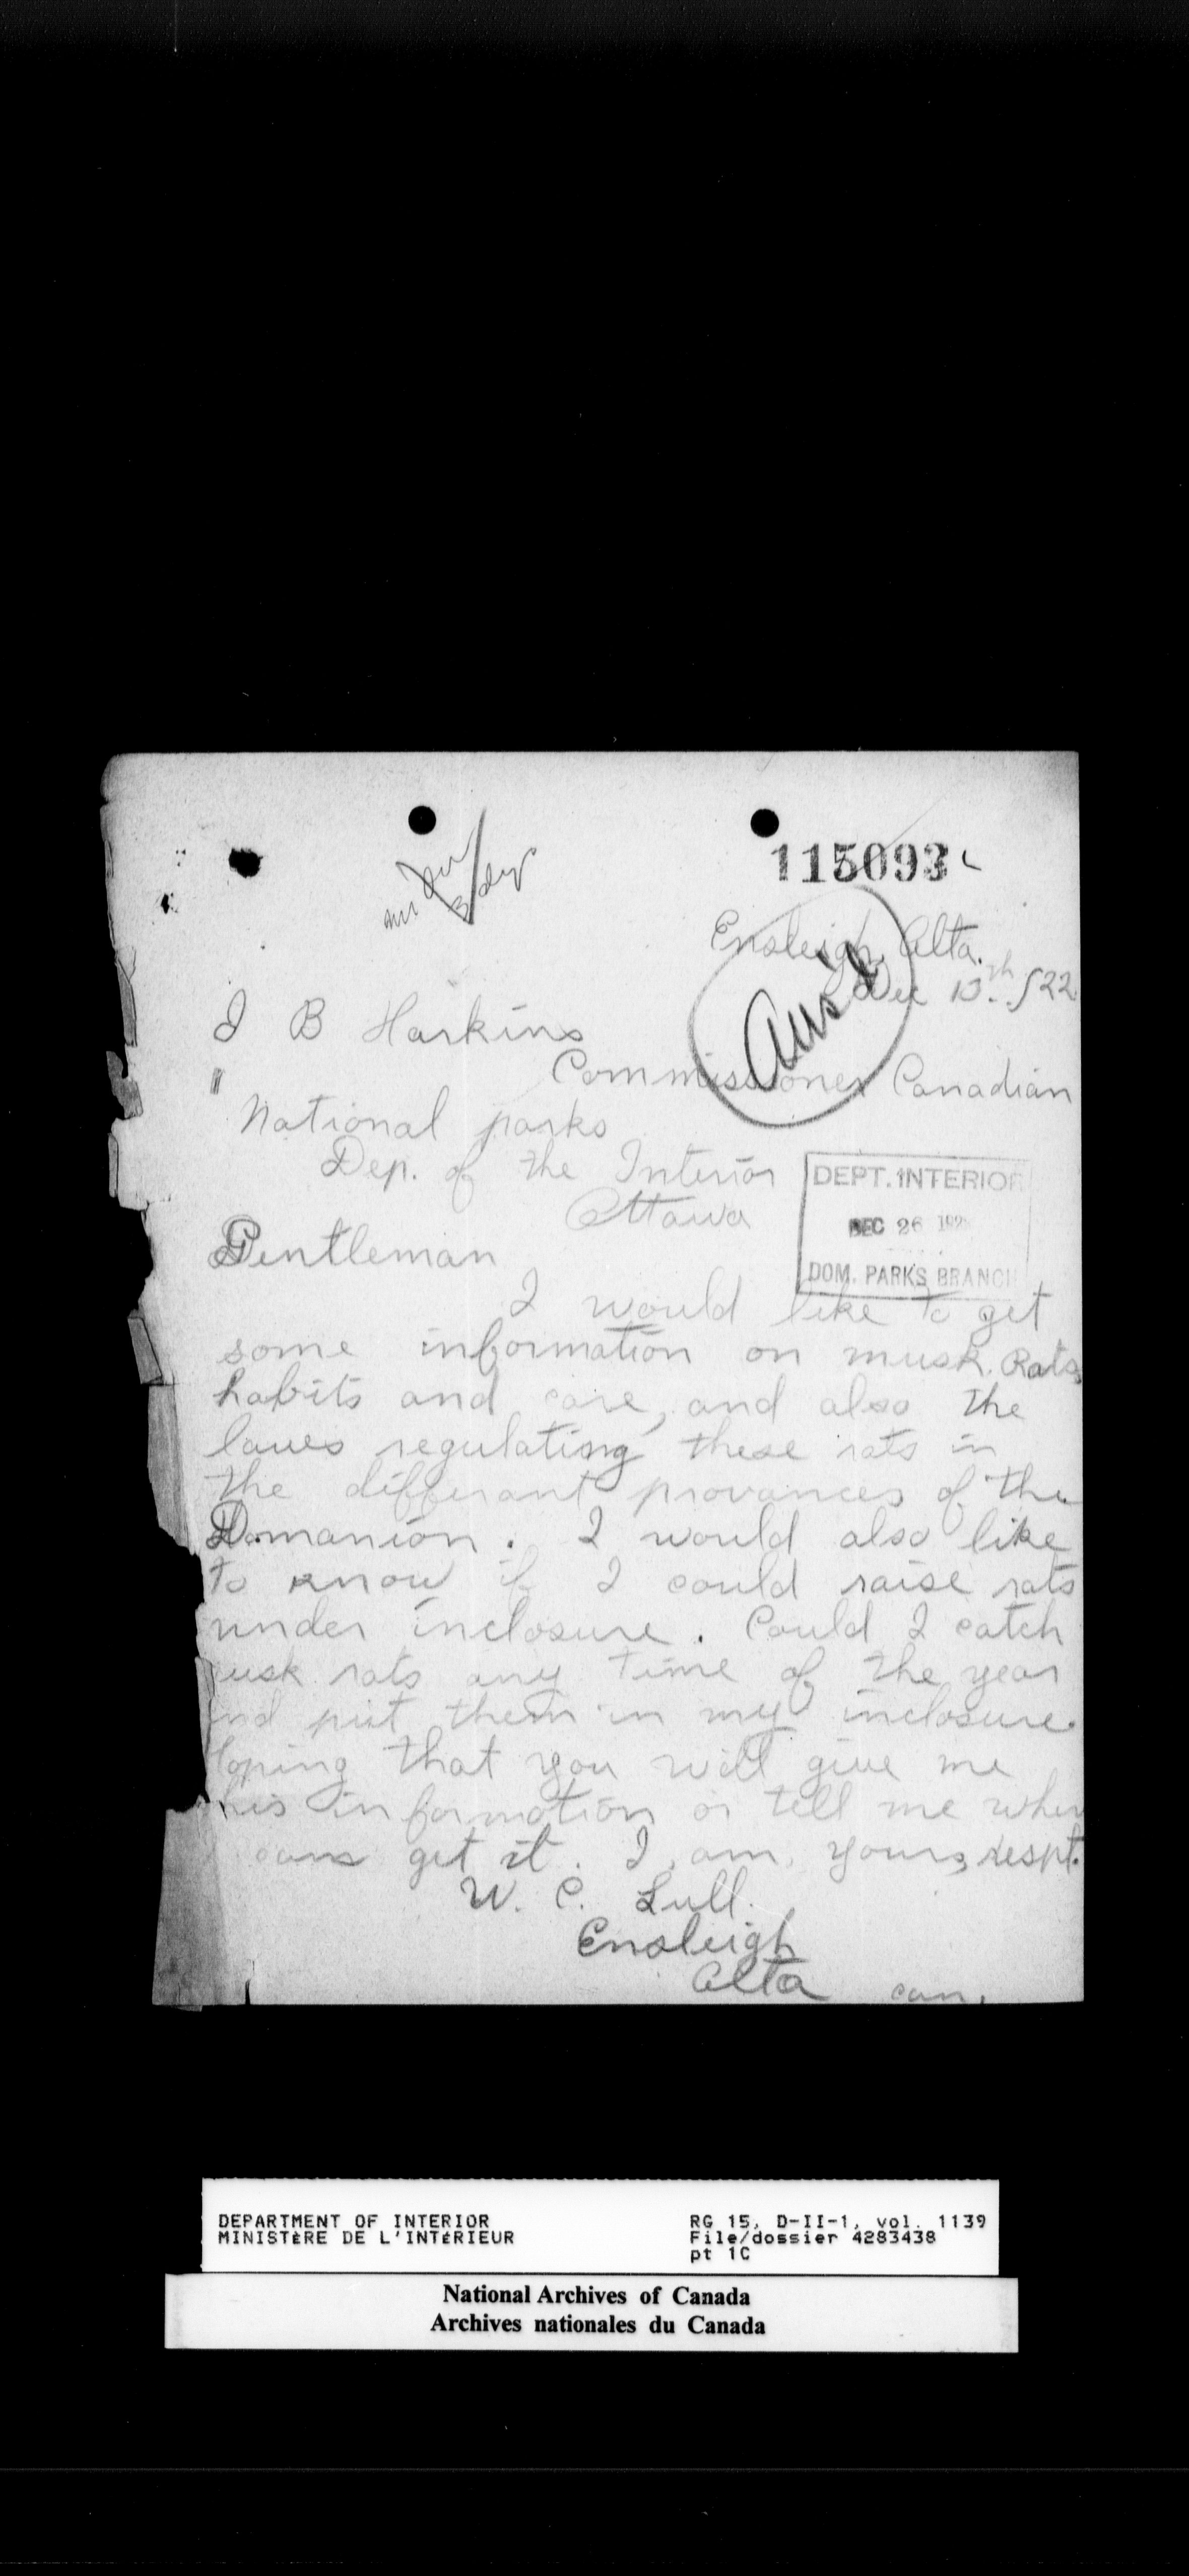 115093
Ensleigh Alta.
Dec 10th /22
J B Harkins
Commissioner Canadian
"
National parks
Dep. of the Interior
Ottawa
Ans'd
DEPT. INTERIOR
DEC 26 192
DOM. PARKS BRANCH
Gentleman
I would like to get
some information on musk. Rats,
habits and care, and also the
laues regulating these rats in
the differant provances of the
Domanion. I would also like
to know if I could raise rats
under inclosure. Could I catch
usk rats any time of the year
nd put them in my inclosure.
oping that you will give me
his information or tell me wher
can get it. I am, yours, respt.
W. C. Lull.
Ensleigh
Alta can,
DEPARTMENT OF INTERIOR
MINISTÈRE DE L'INTÉRIEUR
RG 15, D-II-1, vol. 1139
File/dossier 4283438
pt 1C
National Archives of Canada
Archives nationales du Canada